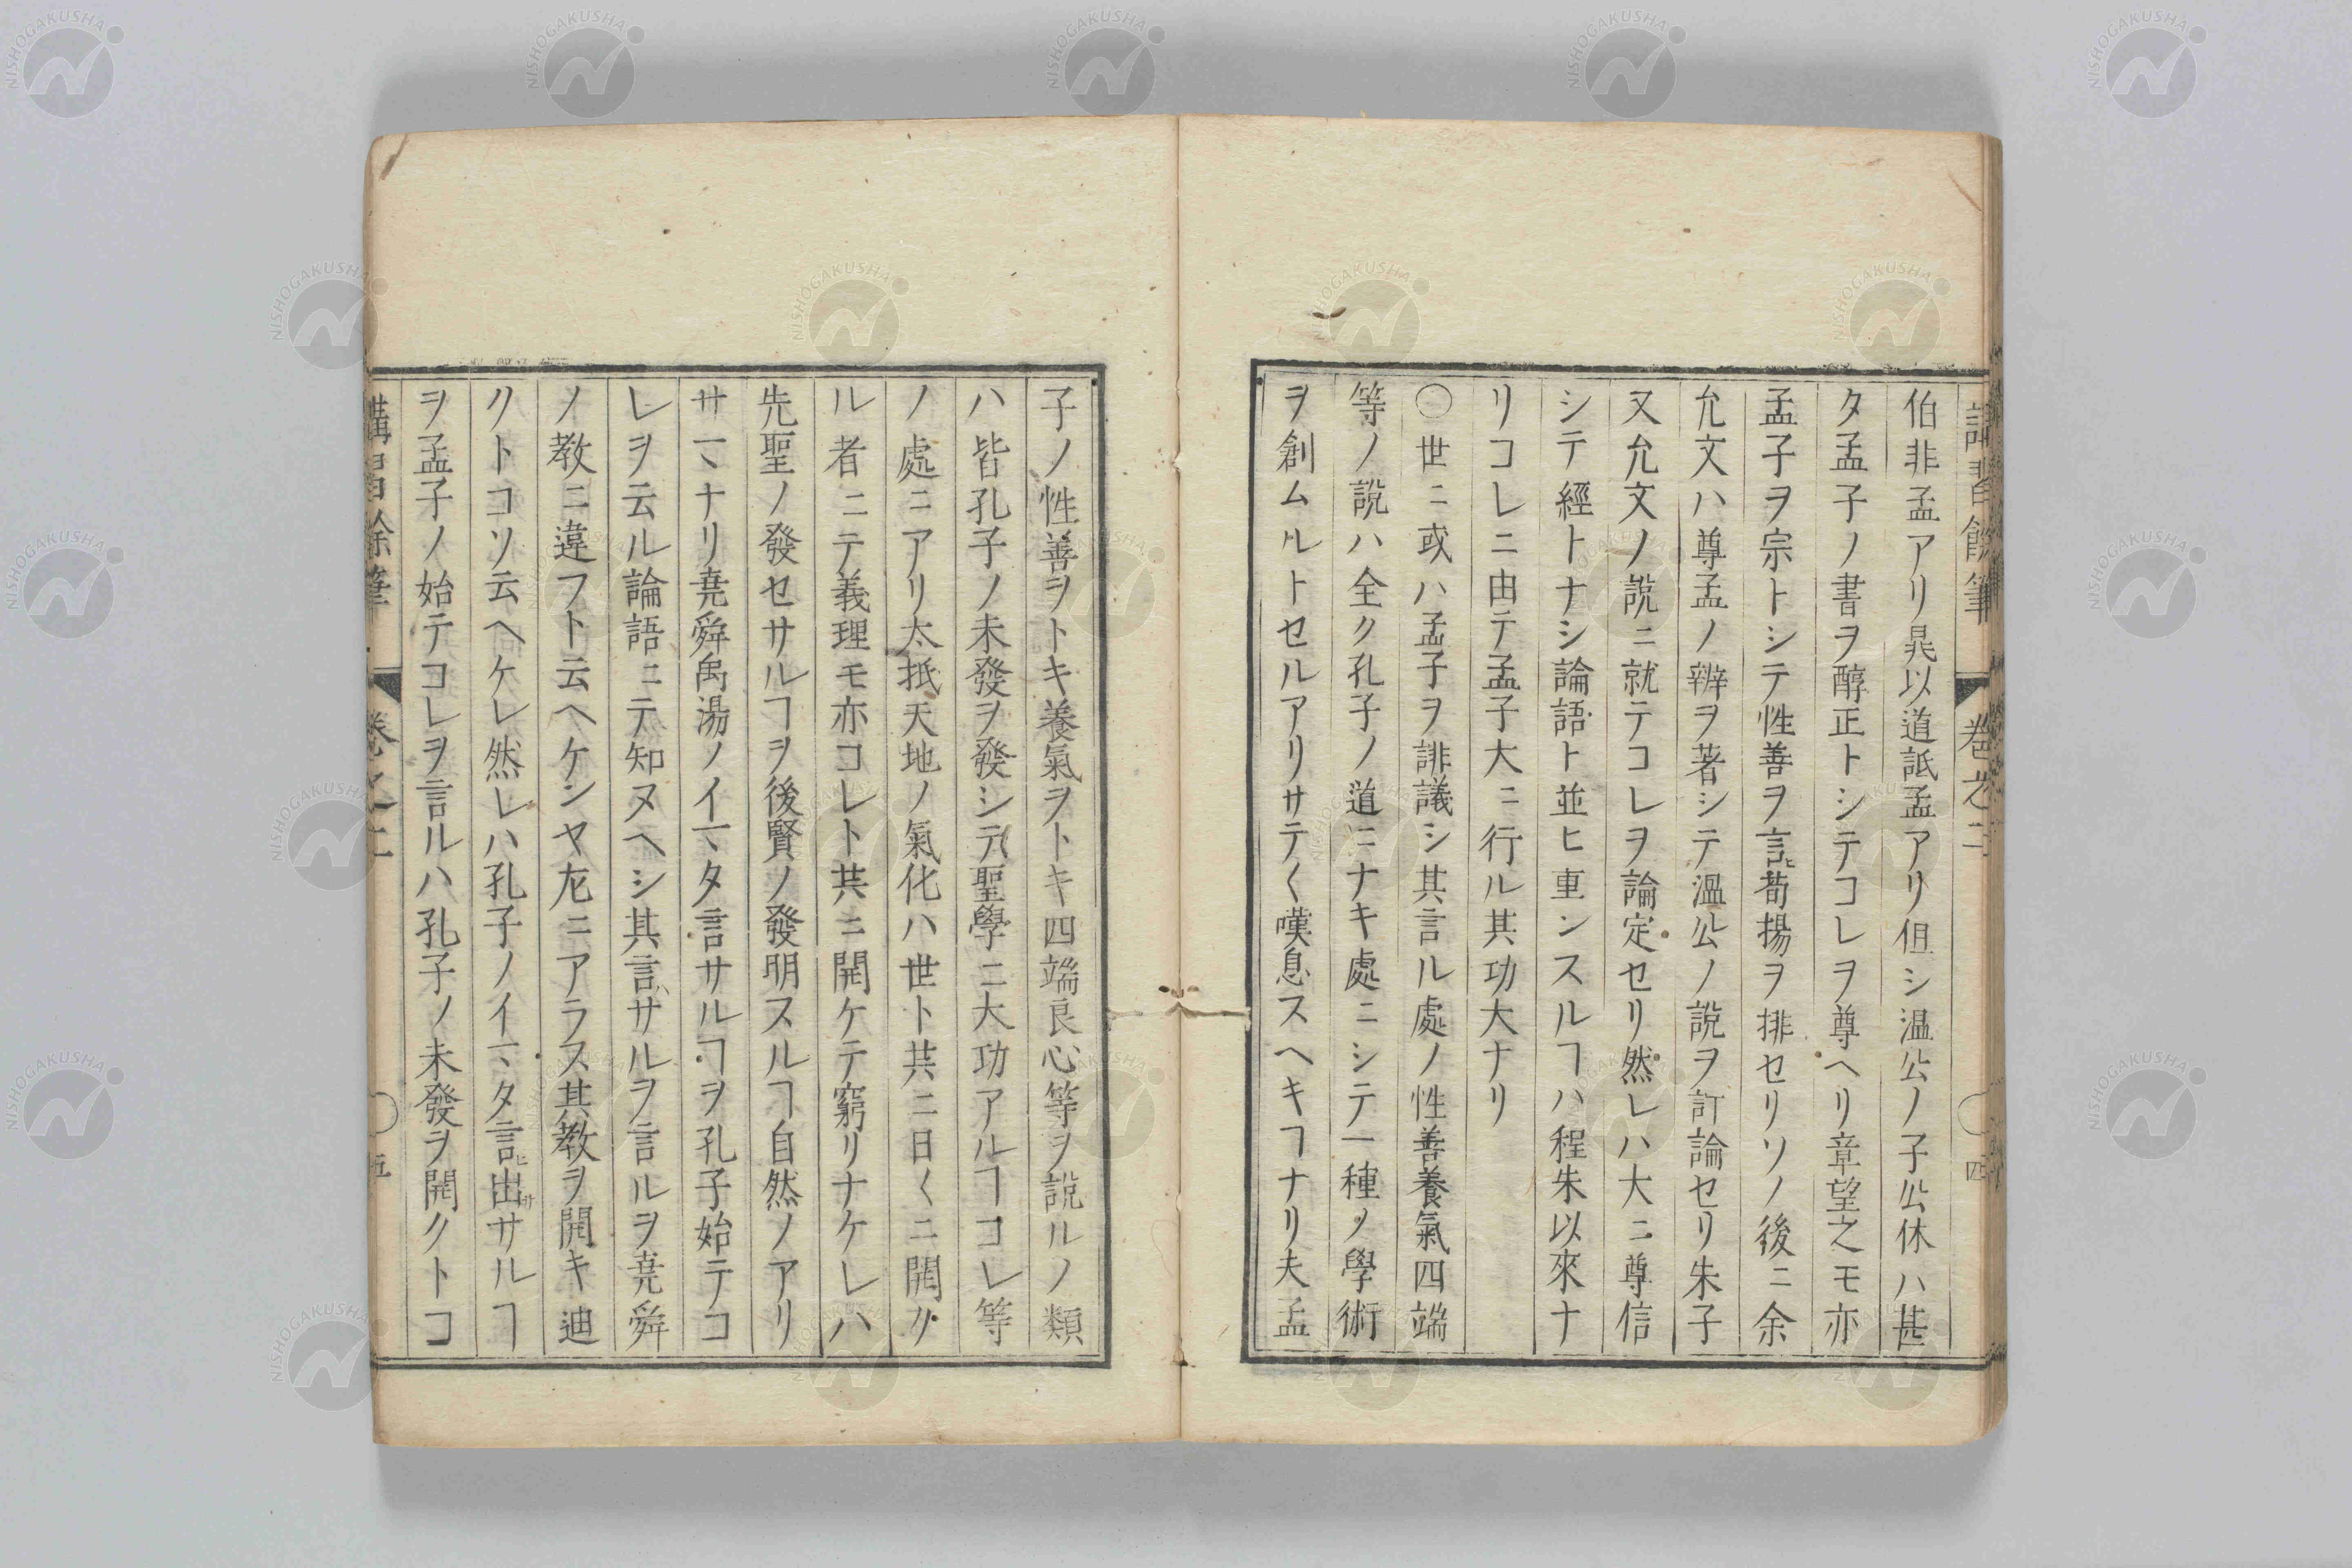 講習餘筆 卷之二 〇四
伯非孟アリ晁以道詆孟アリ但シ温公ノ子公休ハ甚
タ孟子ノ書ヲ醇正トシテコレヲ尊ヘリ章望之モ亦
孟子ヲ宗トシテ性善ヲ言ヒ荀揚ヲ排セリソノ後ニ余
允文ハ尊孟ノ辨ヲ著シテ温公ノ說ヲ訂論セリ朱子
又允文ノ說ニ就テコレヲ論定セリ然レハ大ニ尊信
シテ經トナシ論語ト並ヒ重ンスルヿハ程朱以來ナ
リコレニ由テ孟子大ニ行ル其功大ナリ
〇世ニ或ハ孟子ヲ誹議シ其言ル處ノ性善養氣四端
等ノ說ハ全ク孔子ノ道ニナキ處ニシテ一種ノ學術
ヲ創ムルトセルアリサテ〱嘆息スヘキヿナリ夫孟
子ノ性善ヲトキ養氣ヲトキ四端良心等ヲ說ルノ類
ハ皆孔子ノ未發ヲ發シテ聖學ニ大功アルヿコレ等
ノ處ニアリ太抵天地ノ氣化ハ世ト共ニ日〱ニ開ケ
ル者ニテ義理モ亦コレト共ニ開ケテ窮リナケレハ
先聖ノ發セサルヿヲ後賢ノ發明スルヿ自然ノアリ
サマナリ堯舜禹湯ノイマタ言サルヿヲ孔子始テコ
レヲ云ル論語ニテ知ヌヘシ其言ハサルヲ言ルヲ堯舜
ノ教ニ違フト云ヘケンヤ左ニアラス其教ヲ開キ迪
クトコソ云ヘケレ然レハ孔子ノイマタ言ヒ出ササルヿ
ヲ孟子ノ始テコレヲ言ルハ孔子ノ未發ヲ開クトコ
講習餘筆 卷之二 〇五
NISHOGAKUSHA